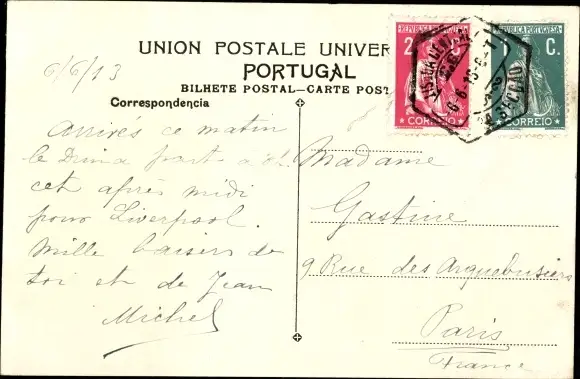 UNION POSTALE UNIVER
PORTUGAL
BILHETE POSTAL—CARTE POST
6/6/13
Correspondencia
Arrivés ce matin
le Drina part à 2h
cet après midi
pour Liverpool.
Mille baisers de
toi et de Jean
Michel
Madame
Gastine
9 Rue des Arquebusiers
Paris
France
REPUBLICA PORTUGUESA
2 C.
CORREIO
REPUBLICA PORTUGUESA
C.
CORREIO
6-6-13